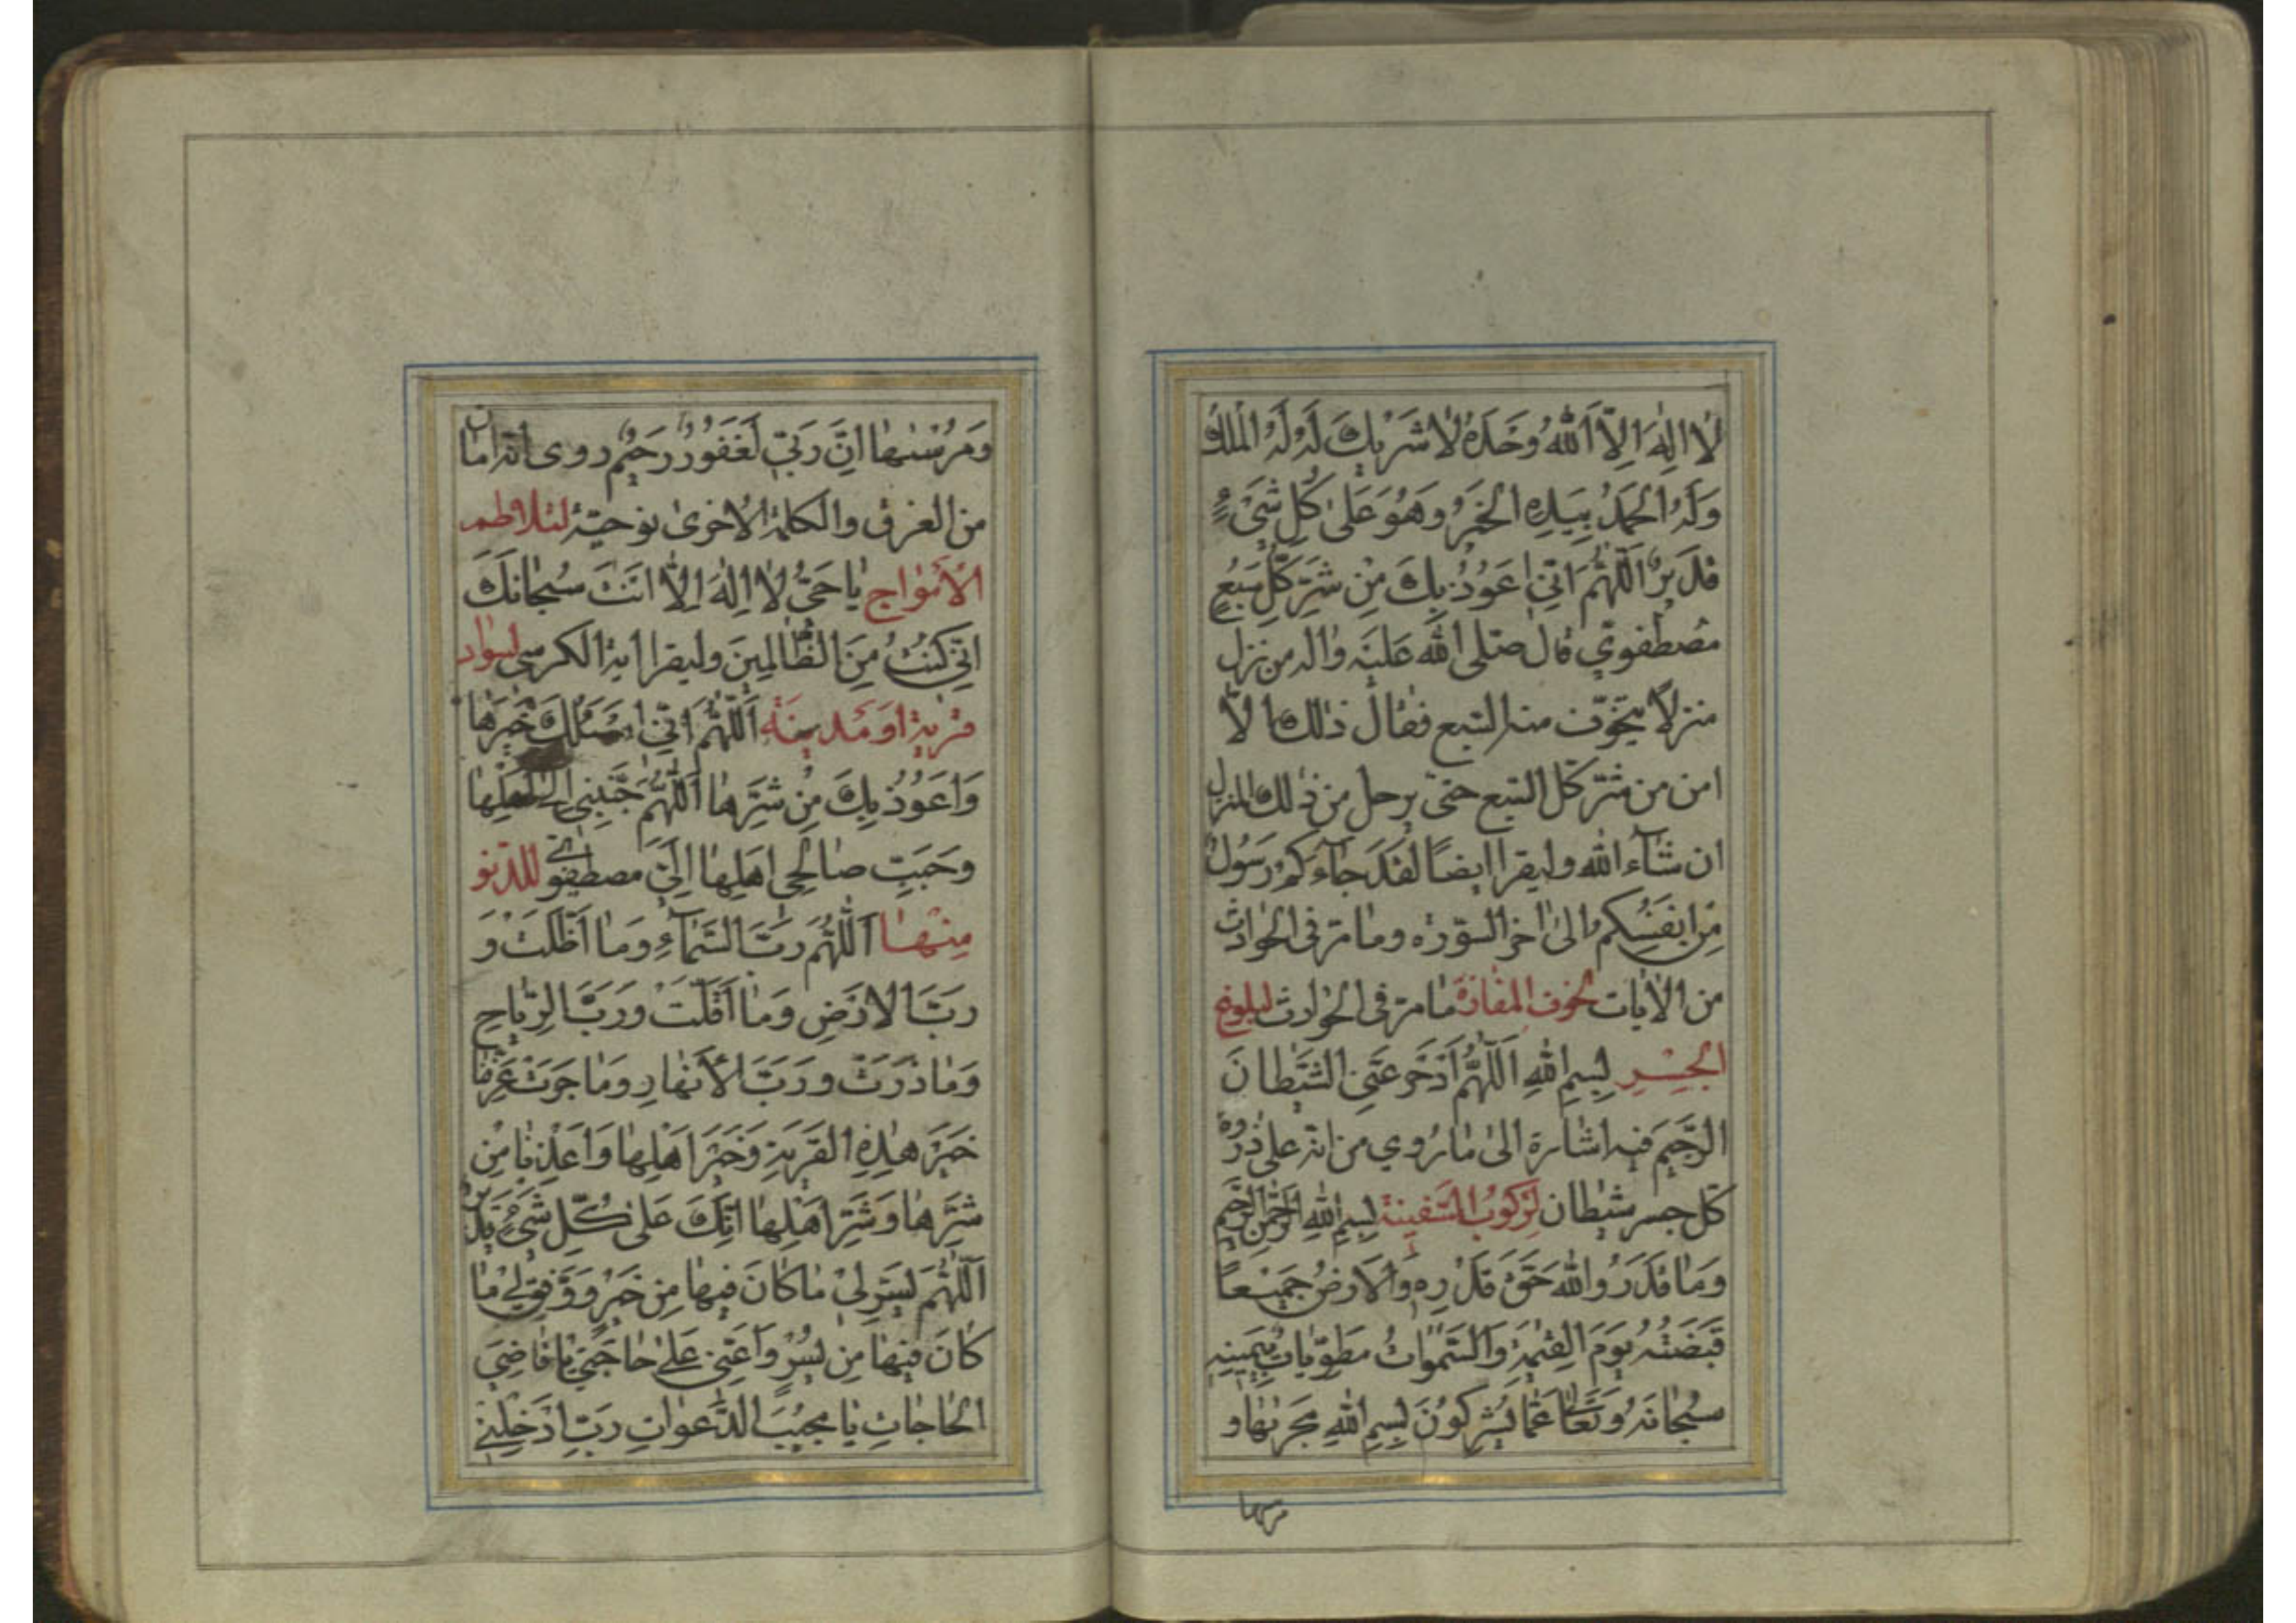 لَا اِلٰهَ اِلَّا اللّٰهُ وَحْدَهُ لَا شَرِيكَ لَهُ لَهُ الْمُلْكُ
وَلَهُ الْحَمْدُ بِيَدِهِ الْخَيْرُ وَهُوَ عَلٰى كُلِّ شَيْءٍ
قَدِيرٌ اَللّٰهُمَّ اِنِّي اَعُوذُ بِكَ مِنْ شَرِّ كُلِّ سَبُعٍ
مصطفوي قال صلى الله عليه واله من نزل
منزلاً يتخوّف منه السّبع فقال ذلك الا
امن من شرّ كلّ السّبع حتى يرحل من ذلك المنزل
ان شآء الله وليقرا ايضًا لَقَدْ جَآءَكُمْ رَسُولٌ
مِنْ اَنْفُسِكُمْ الى اخر السّورة وما مرّ في الحوادث
من الايات لخوف المفازة ما مرّ في الحوادث لبلوغ
الجِسْرِ بِسْمِ اللّٰهِ اَللّٰهُمَّ ادْحَرْ عَنِّي الشَّيْطَانَ
الرَّجِيمَ فيه اشارة الى ما روي من انّه على ذروة
كلّ جسر شيطان لِرُكُوبِ السَّفِينَةِ بِسْمِ اللّٰهِ الرَّحْمٰنِ الرَّحِيمِ
وَمَا قَدَرُوا اللّٰهَ حَقَّ قَدْرِهِ وَالْاَرْضُ جَمِيعًا
قَبْضَتُهُ يَوْمَ الْقِيٰمَةِ وَالسَّمٰوَاتُ مَطْوِيَّاتٌ بِيَمِينِهِ
سُبْحَانَهُ وَتَعَالٰى عَمَّا يُشْرِكُونَ بِسْمِ اللّٰهِ مَجْرٰىهَا وَ
مرسها
وَمُرْسٰىهَا اِنَّ رَبِّي لَغَفُورٌ رَحِيمٌ روى انّه امان
من الغرق والكلمة الاخرى نوحيّة لتلاطم
الْاَمْوَاج يَا حَيُّ لَا اِلٰهَ اِلَّا اَنْتَ سُبْحَانَكَ
اِنِّي كُنْتُ مِنَ الظَّالِمِينَ وليقرا اية الكرسي لسواد
قرية اَوْ مَدِينَةٍ اَللّٰهُمَّ اِنِّي اَسْئَلُكَ خَيْرَهَا
وَاَعُوذُ بِكَ مِنْ شَرِّهَا اَللّٰهُمَّ حَبِّبْنِي اِلٰى اَهْلِهَا
وَحَبِّبْ صَالِحِي اَهْلِهَا اِلَيَّ مصطفوي للدّنو
مِنْهَا اَللّٰهُمَّ رَبَّ السَّمَآءِ وَمَا اَظَلَّتْ وَ
رَبَّ الْاَرْضِ وَمَا اَقَلَّتْ وَرَبَّ الرِّيَاحِ
وَمَا ذَرَتْ وَرَبَّ الْاَنْهَارِ وَمَا جَرَتْ عَرِّفْنَا
خَيْرَ هٰذِهِ الْقَرْيَةِ وَخَيْرَ اَهْلِهَا وَاَعِذْنَا مِنْ
شَرِّهَا وَشَرِّ اَهْلِهَا اِنَّكَ عَلٰى كُلِّ شَيْءٍ قَدِيرٌ
اَللّٰهُمَّ يَسِّرْ لِي مَا كَانَ فِيهَا مِنْ خَيْرٍ وَوَفِّقْ لِي مَا
كَانَ فِيهَا مِنْ يُسْرٍ وَاَعِنِّي عَلٰى حَاجَتِي يَا قَاضِيَ
الْحَاجَاتِ يَا مُجِيبَ الدَّعَوَاتِ رَبِّ اَدْخِلْنِي